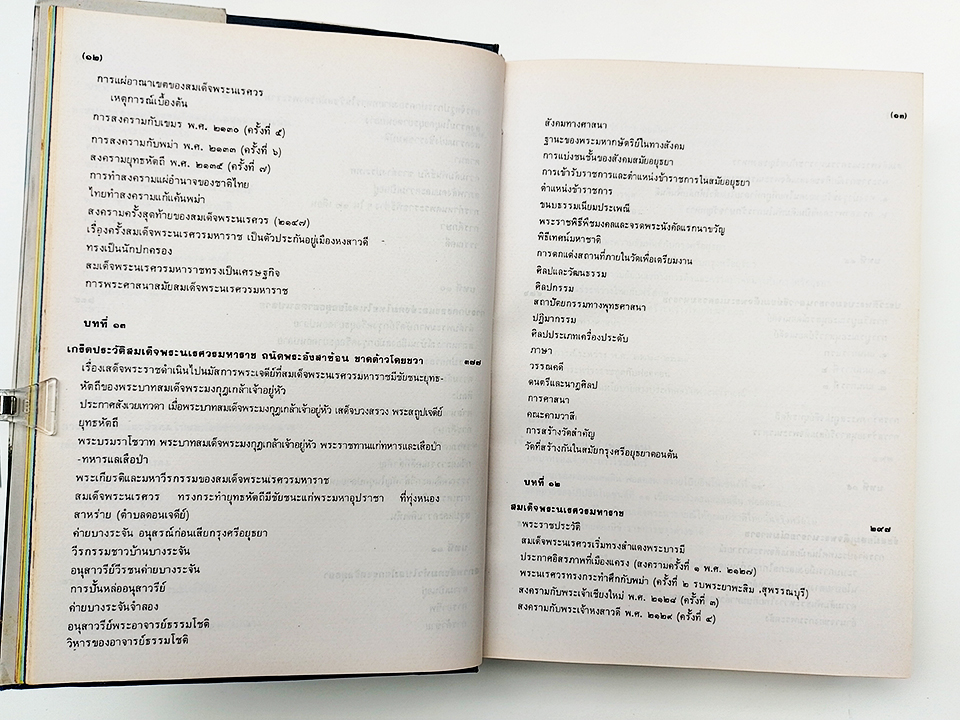 (๑๒)
การแผ่อาณาเขตของสมเด็จพระนเรศวร
เหตุการณ์เบื้องต้น
การสงครามกับเขมร พ.ศ. ๒๑๓๐ (ครั้งที่ ๕)
การสงครามกับพม่า พ.ศ. ๒๑๓๓ (ครั้งที่ ๖)
สงครามยุทธหัตถี พ.ศ. ๒๑๓๕ (ครั้งที่ ๗)
การทำสงครามแผ่อำนาจของชาติไทย
ไทยทำสงครามแก้แค้นพม่า
สงครามครั้งสุดท้ายของสมเด็จพระนเรศวร (๒๑๔๗)
เรื่องครั้งสมเด็จพระนเรศวรมหาราช เป็นตัวประกันอยู่เมืองหงสาวดี
ทรงเป็นนักปกครอง
สมเด็จพระนเรศวรมหาราชทรงเป็นเศรษฐกิจ
การพระศาสนาสมัยสมเด็จพระนเรศวรมหาราช
บทที่ ๑๓
เกร็ดประวัติสมเด็จพระนเรศวรมหาราช ถนัดพระอังสาซ้อน ขาดด้าวโดยขวา ๓๗๗
เรื่องเสด็จพระราชดำเนินไปนมัสการพระเจดีย์ที่สมเด็จพระนเรศวรมหาราชมีชัยชนะยุทธ-
หัตถีของพระบาทสมเด็จพระมงกุฎเกล้าเจ้าอยู่หัว
ประกาศสังเวยเทวดา เมื่อพระบาทสมเด็จพระมงกุฎเกล้าเจ้าอยู่หัว เสด็จบวงสรวง พระสถูปเจดีย์
ยุทธหัตถี
พระบรมราโชวาท พระบาทสมเด็จพระมงกุฎเกล้าเจ้าอยู่หัว พระราชทานแก่ทหารและเสือป่า
-ทหารแลเสือป่า
พระเกียรติและมหาวีรกรรมของสมเด็จพระนเรศวรมหาราช
สมเด็จพระนเรศวร ทรงกระทำยุทธหัตถีมีชัยชนะแก่พระมหาอุปราชา ที่ทุ่งหนอง
สาหร่าย (ตำบลดอนเจดีย์)
ค่ายบางระจัน อนุสรณ์ก่อนเสียกรุงศรีอยุธยา
วีรกรรมชาวบ้านบางระจัน
อนุสาวรีย์วีรชนค่ายบางระจัน
การปั้นหล่ออนุสาวรีย์
ค่ายบางระจันจำลอง
อนุสาวรีย์พระอาจารย์ธรรมโชติ
วิหารของอาจารย์ธรรมโชติ
(๑๓)
สังคมทางศาสนา
ฐานะของพระมหากษัตริย์ในทางสังคม
การแบ่งชนชั้นของสังคมสมัยอยุธยา
การเข้ารับราชการและตำแหน่งข้าราชการในสมัยอยุธยา
ตำแหน่งข้าราชการ
ขนบธรรมเนียมประเพณี
พระราชพิธีพืชมงคลและจรดพระนังคัลแรกนาขวัญ
พิธีเทศน์มหาชาติ
การตกแต่งสถานที่ภายในวัดเพื่อเตรียมงาน
ศิลปและวัฒนธรรม
ศิลปกรรม
สถาปัตยกรรมทางพุทธศาสนา
ปฏิมากรรม
ศิลปประเภทเครื่องประดับ
ภาษา
วรรณคดี
ดนตรีและนาฏศิลป
การศาสนา
คณะคามวาสี
การสร้างวัดสำคัญ
วัดที่สร้างกันในสมัยกรุงศรีอยุธยาตอนต้น
บทที่ ๑๒
สมเด็จพระนเรศวรมหาราช ๒๙๗
พระราชประวัติ
สมเด็จพระนเรศวรเริ่มทรงสำแดงพระบารมี
ประกาศอิสรภาพที่เมืองแครง (สงครามครั้งที่ ๑ พ.ศ. ๒๑๒๗)
พระนเรศวรทรงกระทำศึกกับพม่า (ครั้งที่ ๒ รบพระยาพะสิม .สุพรรณบุรี)
สงครามกับพระเจ้าเชียงใหม่ พ.ศ. ๒๑๒๘ (ครั้งที่ ๓)
สงครามกับพระเจ้าหงสาวดี พ.ศ. ๒๑๒๙ (ครั้งที่ ๔)